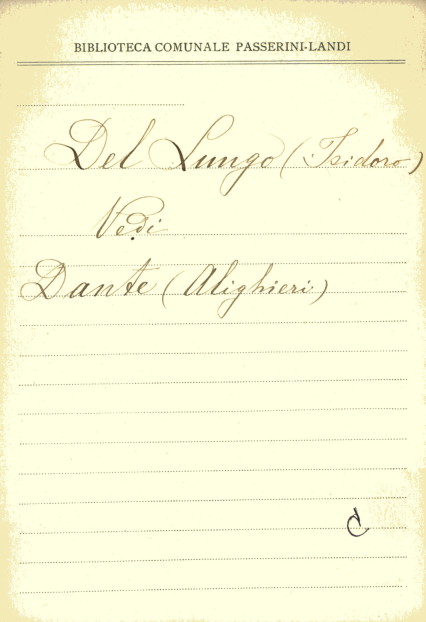 BIBLIOTECA COMUNALE PASSERINI-LANDI
Del Lungo (Isidoro)
Vedi
Dante (Alighieri)
C